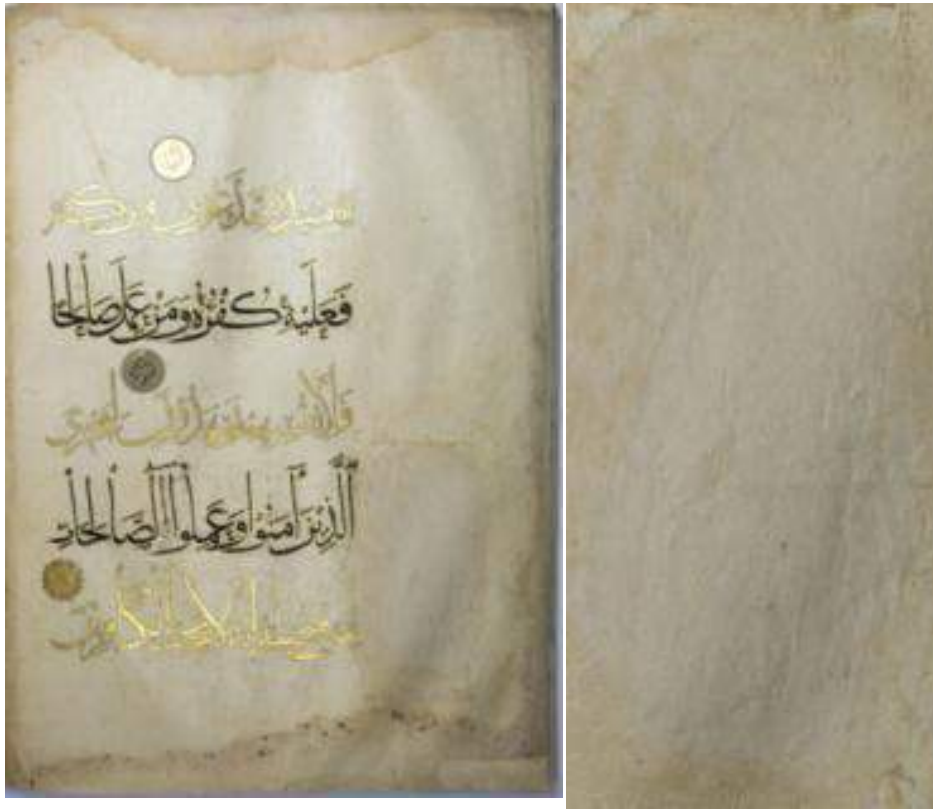 يومئذ يصدعون من كفر
فَعَلَيْهِ كُفْرُهُ وَمَنْ عَمِلَ صَالِحًا
فلأنفسهم يمهدون ليجزي
الَّذِينَ آمَنُوا وَعَمِلُوا الصَّالِحَاتِ
من فضله إنه لا يحب الكافرين